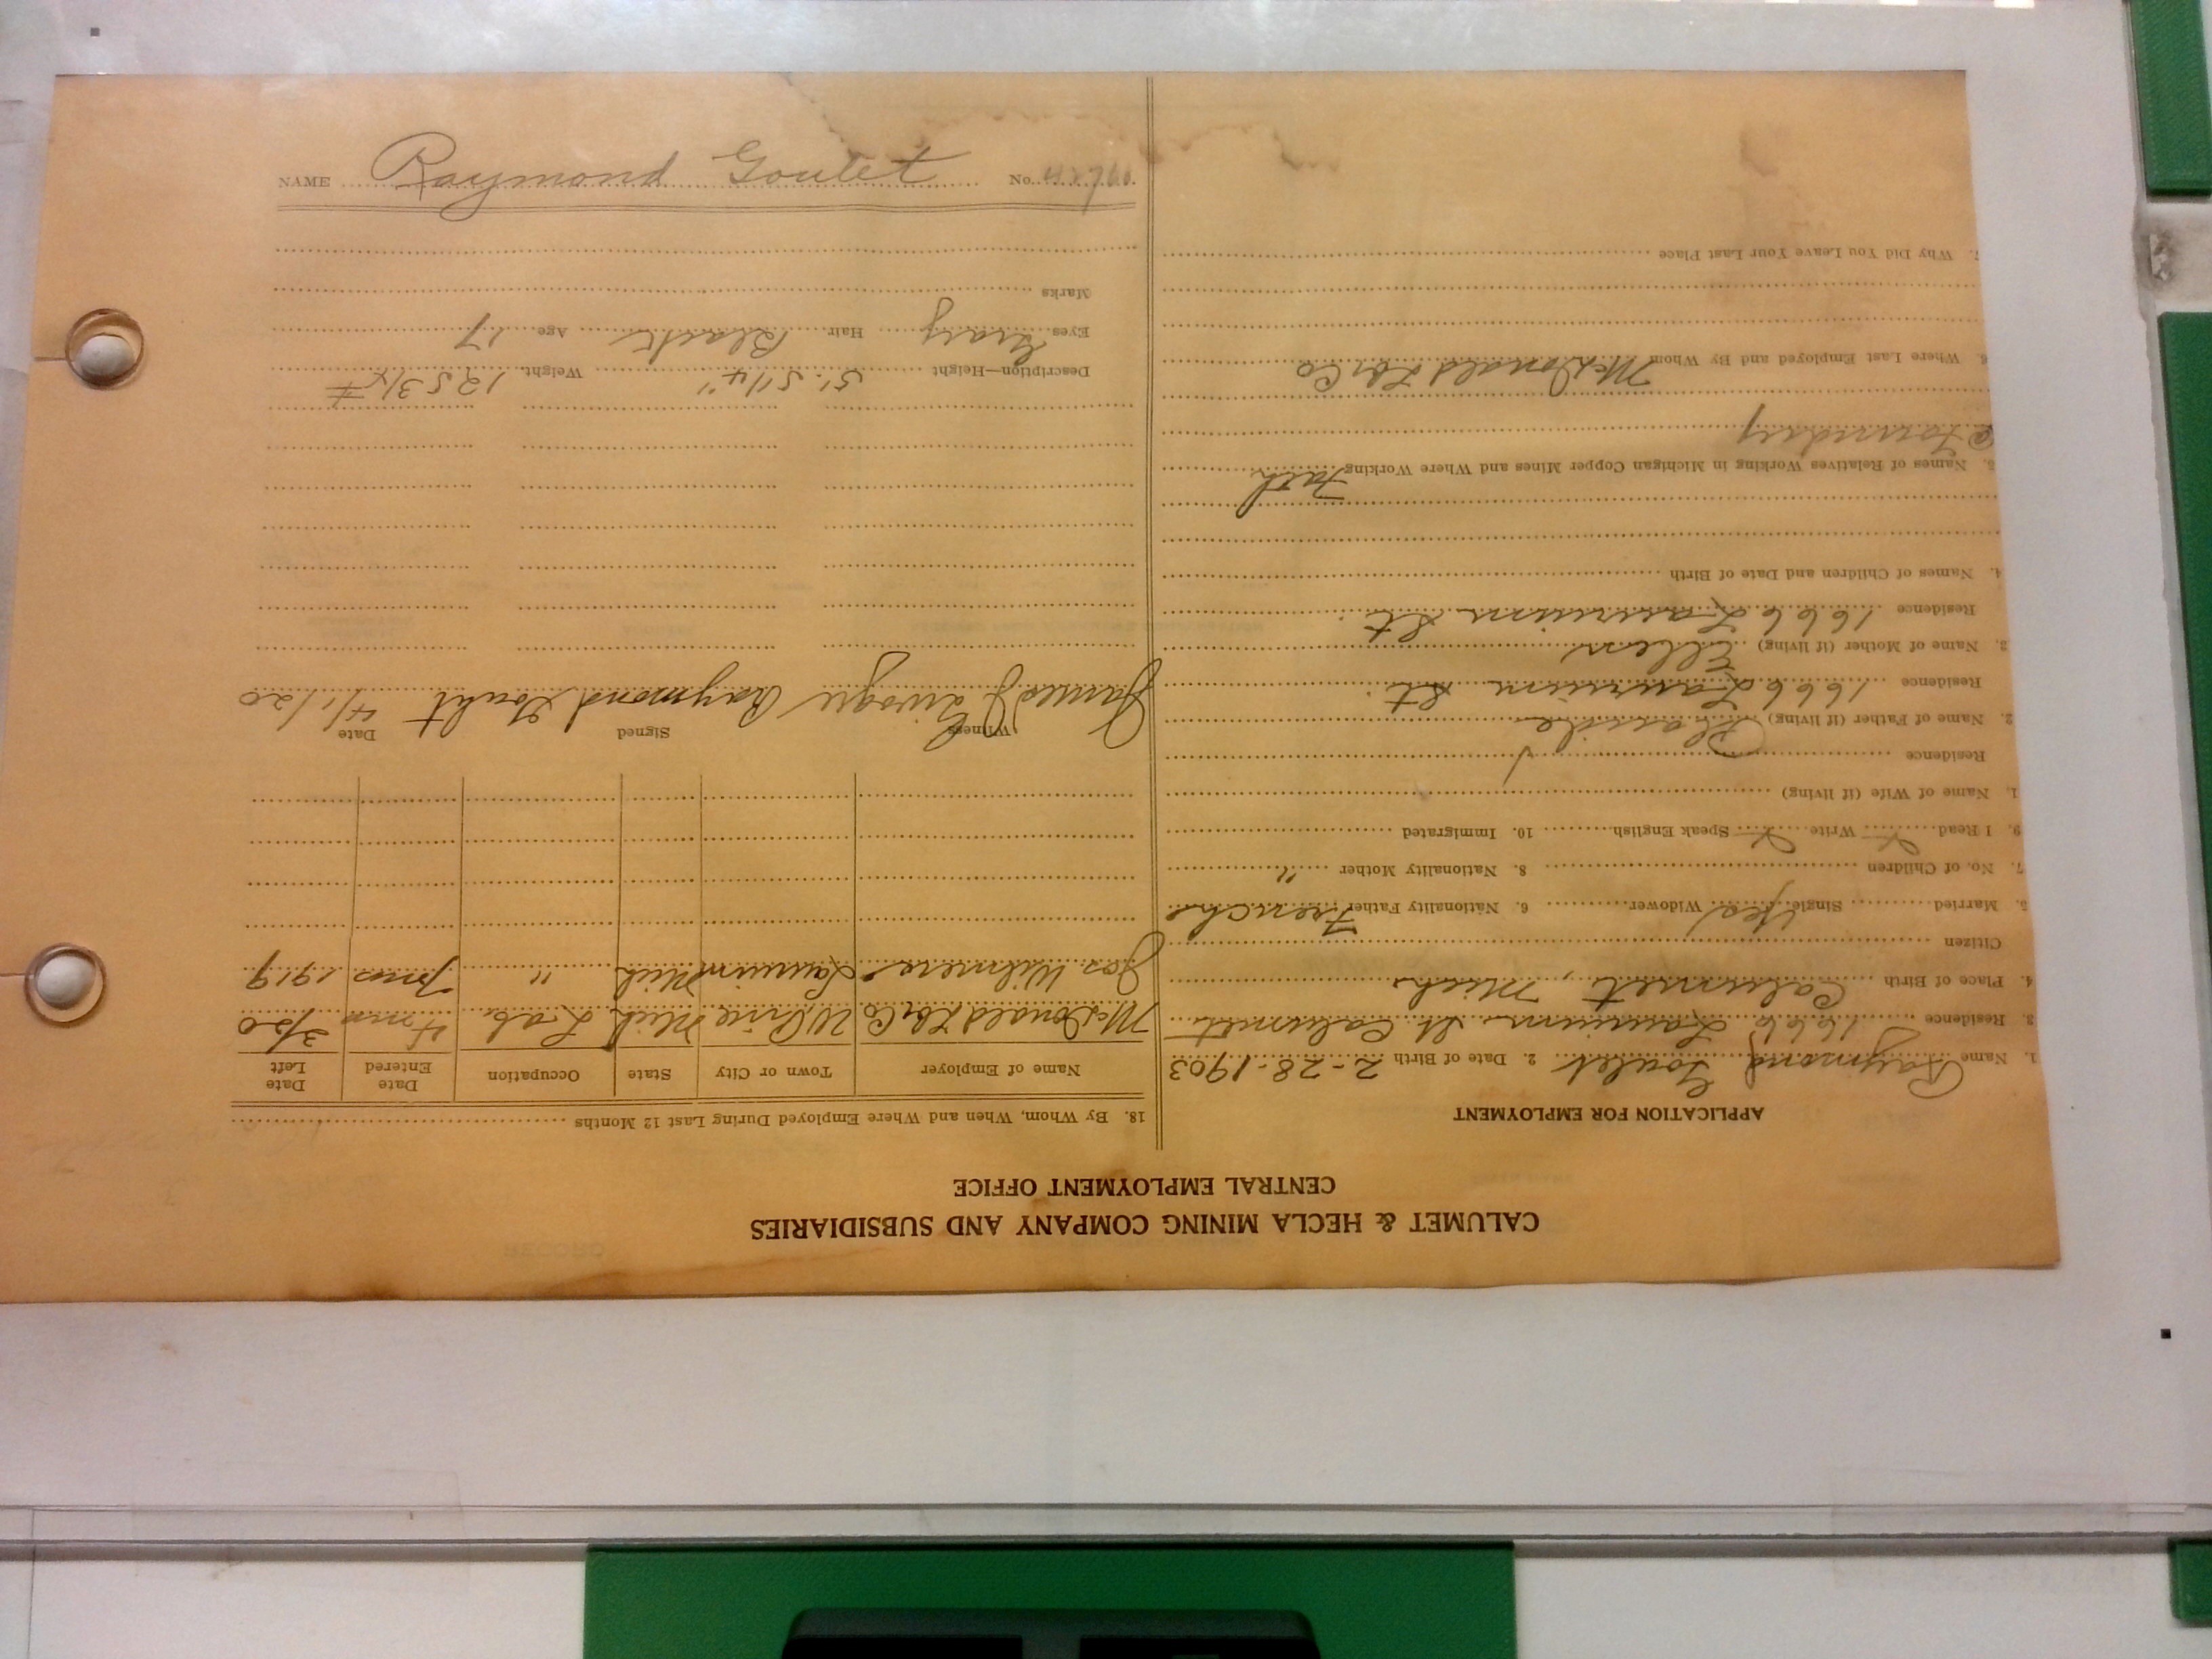 CALUMET & HECLA MINING COMPANY AND SUBSIDIARIES
CENTRAL EMPLOYMENT OFFICE
APPLICATION FOR EMPLOYMENT
1. Name Raymond Goulet 2. Date of Birth 2-28-1903
3. Residence 1666 Laurium St. Calumet
4. Place of Birth Calumet, Mich
Citizen
5. Married Single Yes Widower 6. Nationality Father French
7. No. of Children 8. Nationality Mother "
9. I Read Write Speak English 10. Immigrated
1. Name of Wife (if living)
Residence
2. Name of Father (if living) Claude
Residence 1666 Laurium St.
3. Name of Mother (if living) Ellen
Residence 1666 Laurium St.
4. Names of Children and Date of Birth
5. Names of Relatives Working in Michigan Copper Mines and Where Working Fath
Foundry
6. Where Last Employed and By Whom McDonald Lbr Co
7. Why Did You Leave Your Last Place
18. By Whom, When and Where Employed During Last 12 Months
Name of Employer Town or City State Occupation Date Entered Date Left
McDonald Lbr Co Mich Lab. 4 mos 3/20
Jos Wilmers Laurium Mich " 7 mos 1919
Witness Signed Date
James J Raymond Goulet 4/1/20
Description—Height 5'. 5 1/4" Weight 125 3/4 #
Eyes Gray Hair Black Age 17
Marks
NAME Raymond Goulet No.